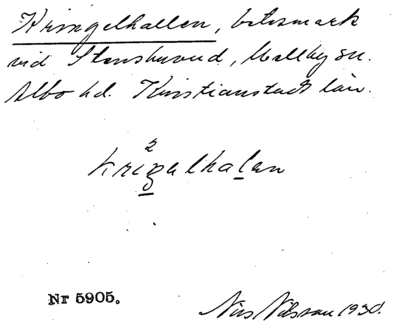 Kringelhallen, betesmark
vid Stenshuvud, Mellby sn.
Albo hd. Kristianstads län.
2
krigalhalan
Nr 5905.
Nils Nilsson 1930.